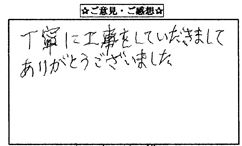 ☆ご意見・ご感想☆
丁寧に工事をしていだきまして
ありがとうございました